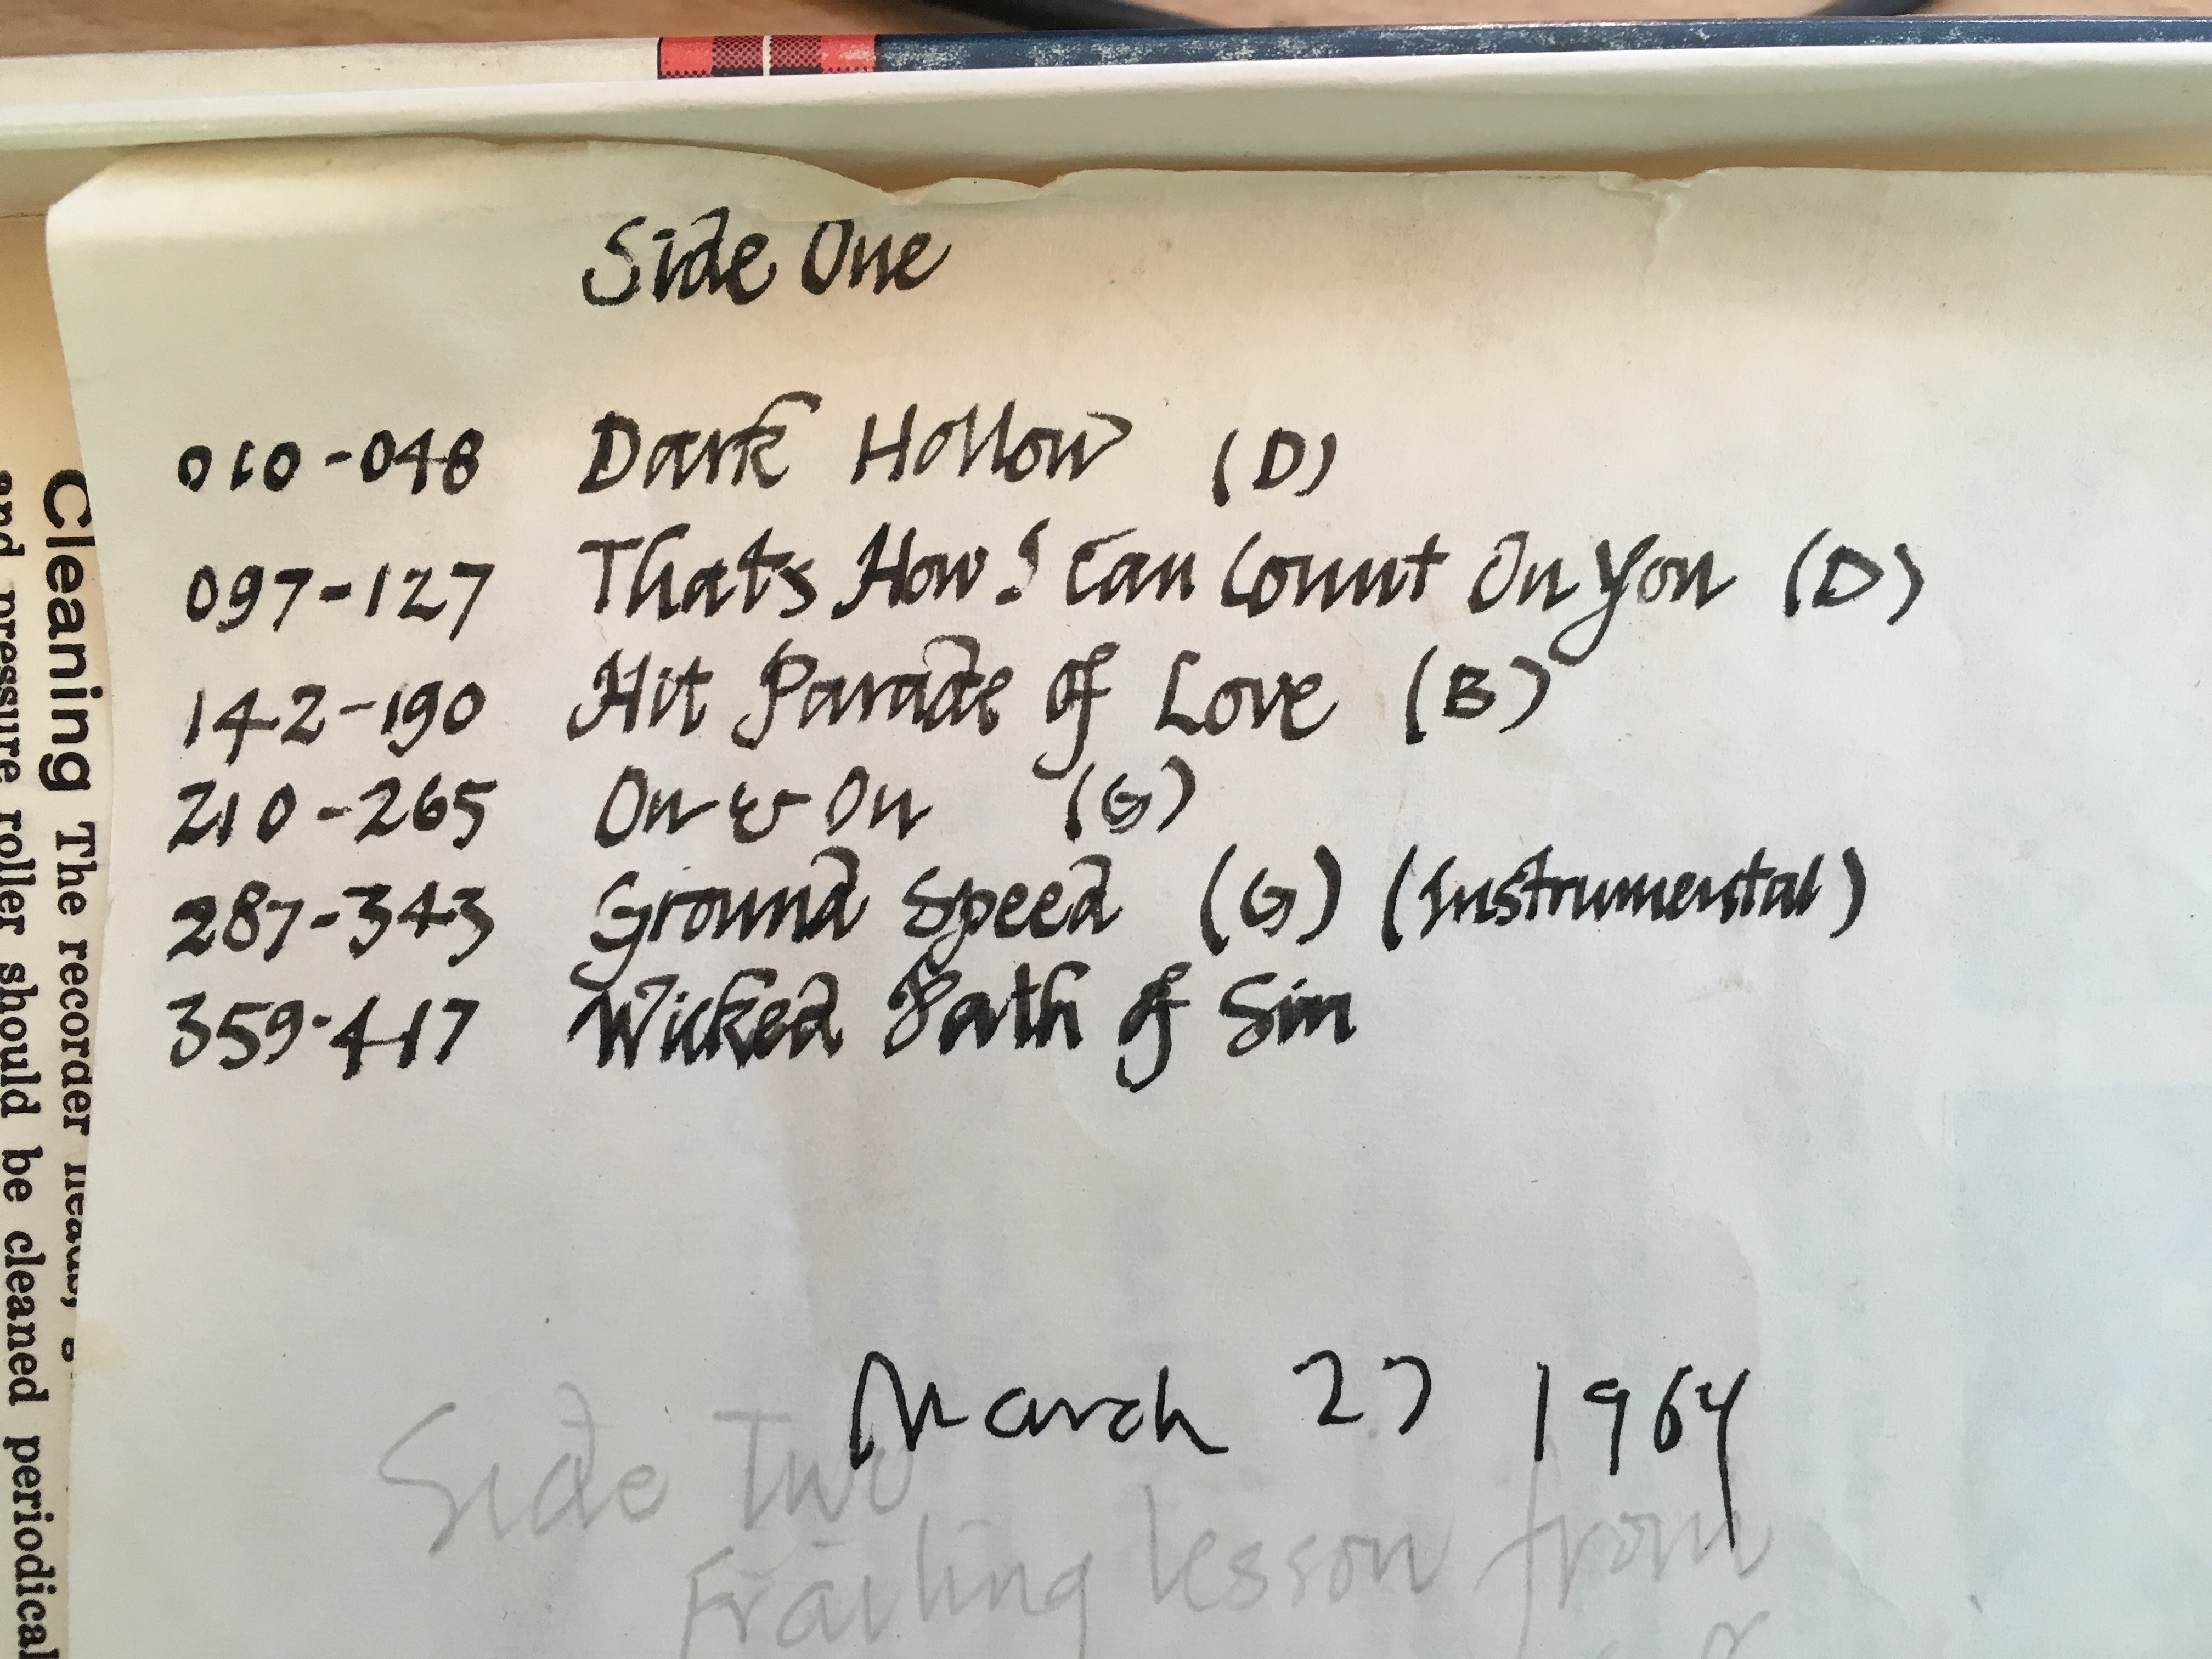 Side One
010-048 Dark Hollow (D)
097-127 Thats How I Can Count On You (D)
142-190 Hit Parade Of Love (B)
210-265 On & On (G)
287-343 Ground Speed (G) (Instrumental)
359-417 Wicked Path Of Sin
March 27 1964
Side Two
Frailing lesson from
Cleaning The recorder heads,
and pressure roller should be cleaned periodical